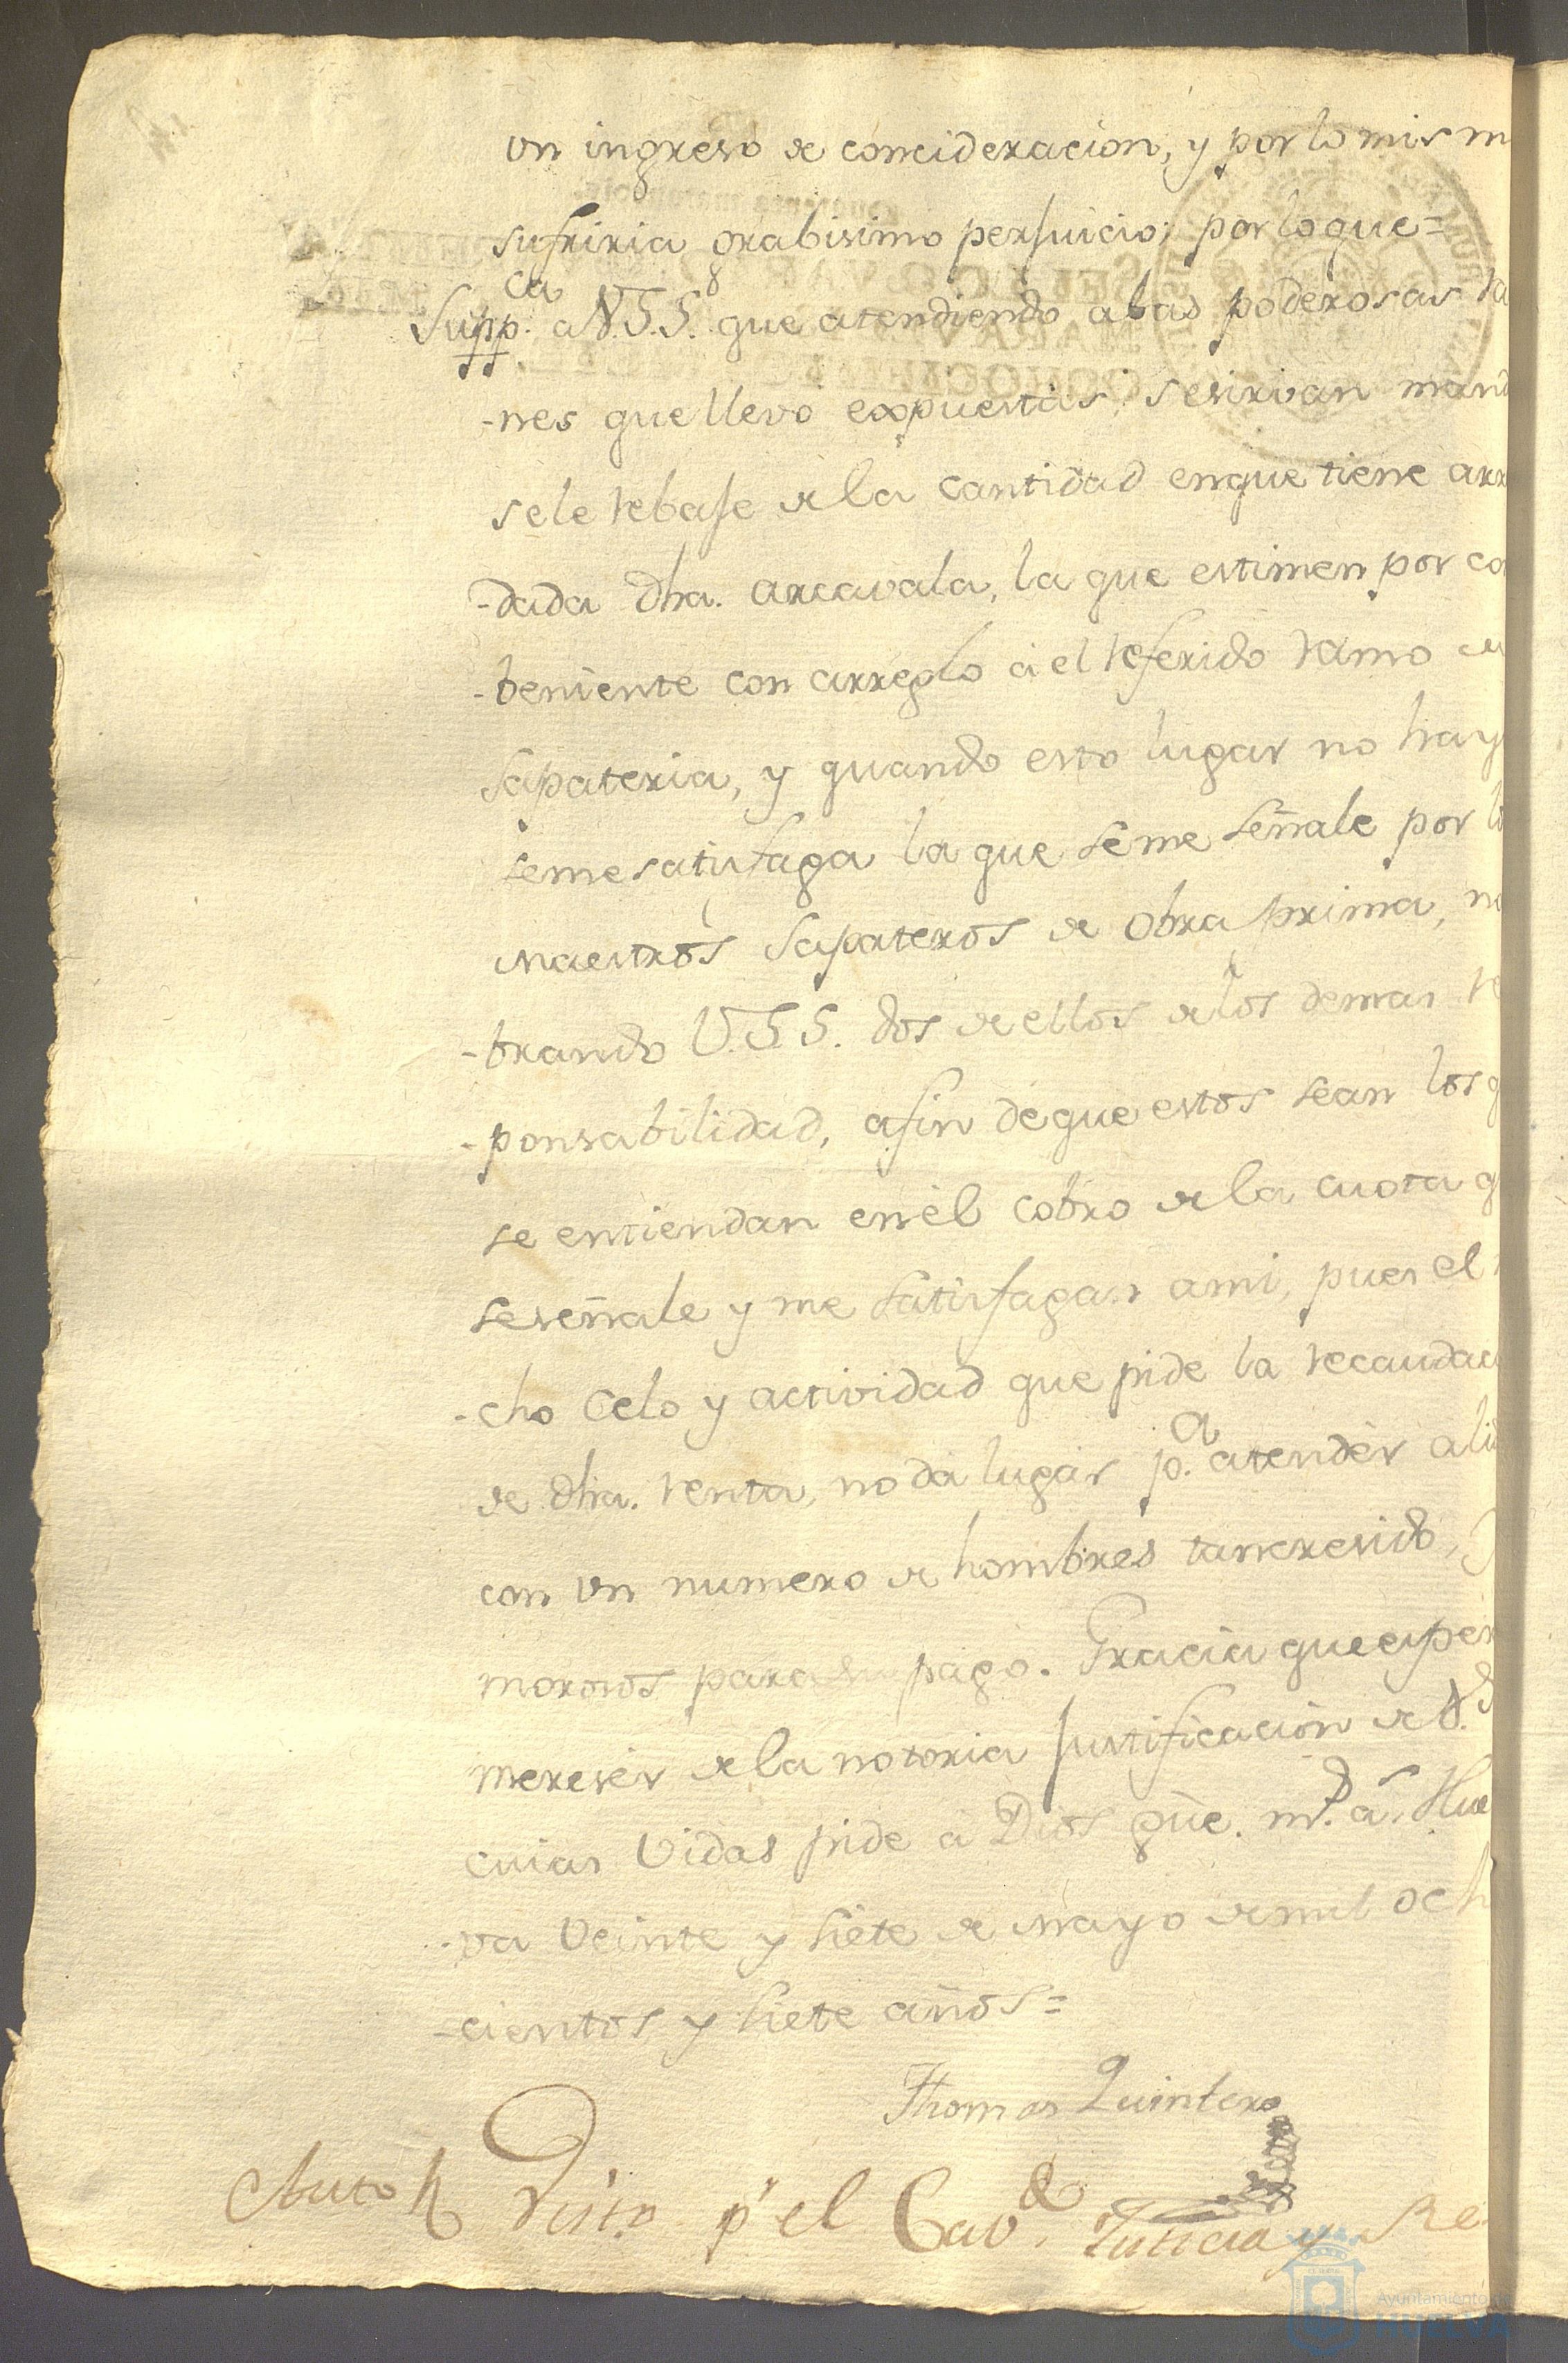 un ingreso de concideracion, y por lo mism
sufriria grabisimo perjuicio; por lo que=
Supp.ca a V.S.S. que atendiendo a las poderosas ra
-nes que llevo expuestas, se sirvan mand
se le rebaje de la cantidad en que tiene arr
-dada dha. arcavala, la que estimen por co
-beniente con arreglo a el referido ramo de
sapateria, y quando esto lugar no hay
se me satisfaga la que se me señale por lo
maestros Sapateros de obra prima, no
-brando V.S.S. dos de ellos de los demas re
-ponsabilidad, afin de que estos sean los q
se entiendan en él cobro de la cuota q
se señale y me satisfagan a mi, pues el
-cho celo y actividad que pide la recaudaci
de dha. renta, no da lugar p.a atender a li
con un numero de hombres tan cresido,
morosos para su pago. Gracia que esper
mereser de la notoria justificacion de V.s
cuias vidas pide a Dios gûe. m.s a.s Hue
-va veinte y siete de mayo de mil och
-cientos y siete años=
Thomas Quintero
Auto Visto pr el Cav.do Justicia y Re
Ayuntamiento de
HUELVA